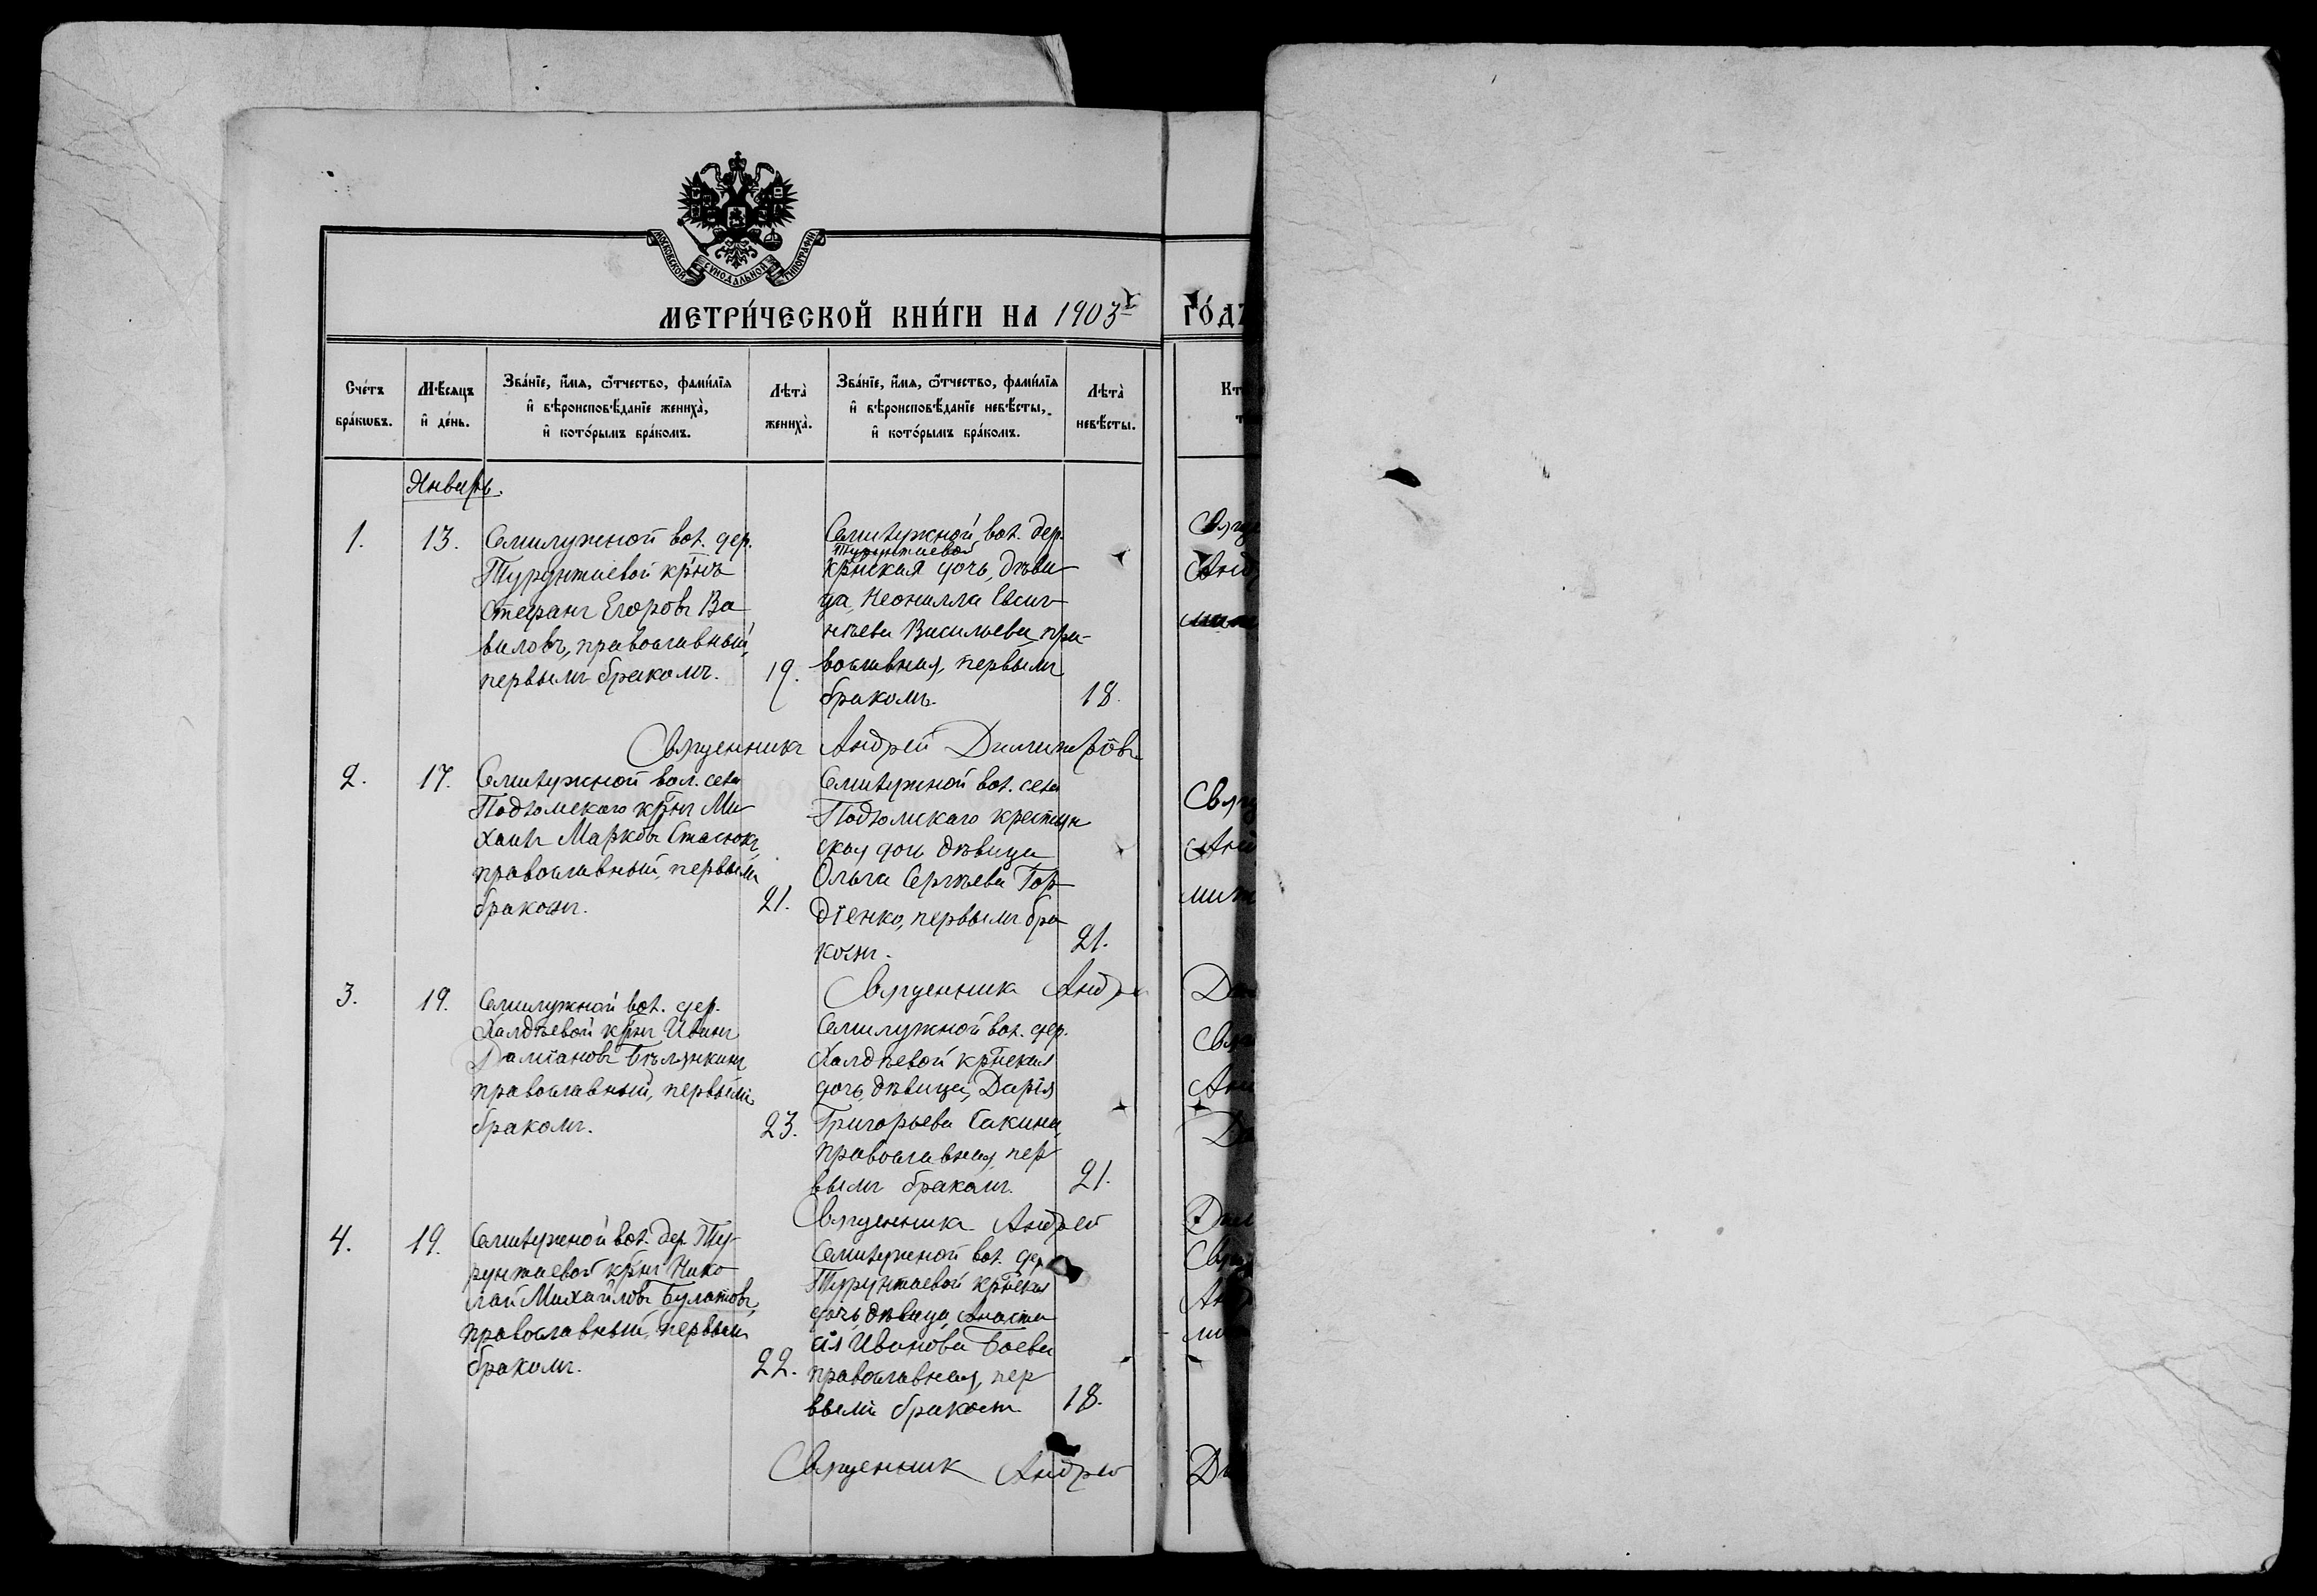 МОСКОВСКОЙ СѴНОДАЛЬНОЙ ТИПОГРАФІИ
МЕТРИ́ЧЕСКОЙ КНИ́ГИ НА 1903й ГО́ДЪ
Сче́тъ бра́кѡвъ.
Мѣ́сяцъ и҆ де́нь.
Зва́нїе, и҆́мѧ, ѻ҆́тчество, фами́лїѧ
и҆ вѣроисповѣ́данїе жениха̀,
и҆ кото́рымъ бра́комъ.
Лѣта̀ жениха̀.
Зва́нїе, и҆́мѧ, ѻ҆́тчество, фами́лїѧ
и҆ вѣроисповѣ́данїе невѣ́сты,
и҆ кото́рымъ бра́комъ.
Лѣта̀ невѣ́сты.
Кт
Январь.
1.
13.
Семилужной вол. дер.
Турунтаевой кр̃нъ
Стефанъ Егоровъ Ва-
виловъ, православный,
первымъ бракомъ.
19.
Семилужной вол. дер.
Турунтаевой
кр̃нская дочь, дѣви-
ца, Неонилла Евсиг-
нѣева Васильева, пра-
вославная, первымъ
бракомъ.
18.
Священникъ Андрей Димитровъ
2.
17.
Семилужной вол. села
Подломскаго кр̃нъ Ми-
хаилъ Марковъ Стасюкъ,
православный, первымъ
бракомъ.
21.
Семилужной вол. села
Подломскаго крестьян
ская дочь дѣвица
Ольга Сергѣева Гор-
діенко, первымъ бра-
комъ.
21.
Священникъ Андре
3.
19.
Семилужной вол. дер.
Халдѣевой кр̃нъ Иванъ
Даміановъ Бѣлянкинъ
православный, первымъ
бракомъ.
23.
Семилужной вол. дер.
Халдѣевой кр̃нская
дочь, дѣвица, Дарія
Григорьева Сакина,
православная, пер-
вымъ бракомъ.
21.
Священникъ Андрей
4.
19.
Семилужной вол. дер. Ту-
рунтаевой кр̃нъ Нико-
лай Михайловъ Булатовъ,
православный, первымъ
бракомъ.
22.
Семилужной вол. дер.
Турунтаевой кр̃нская
дочь, дѣвица Анаста
сія Иванова Боева
православная, пер-
вымъ бракомъ
18.
Священникъ Андрей